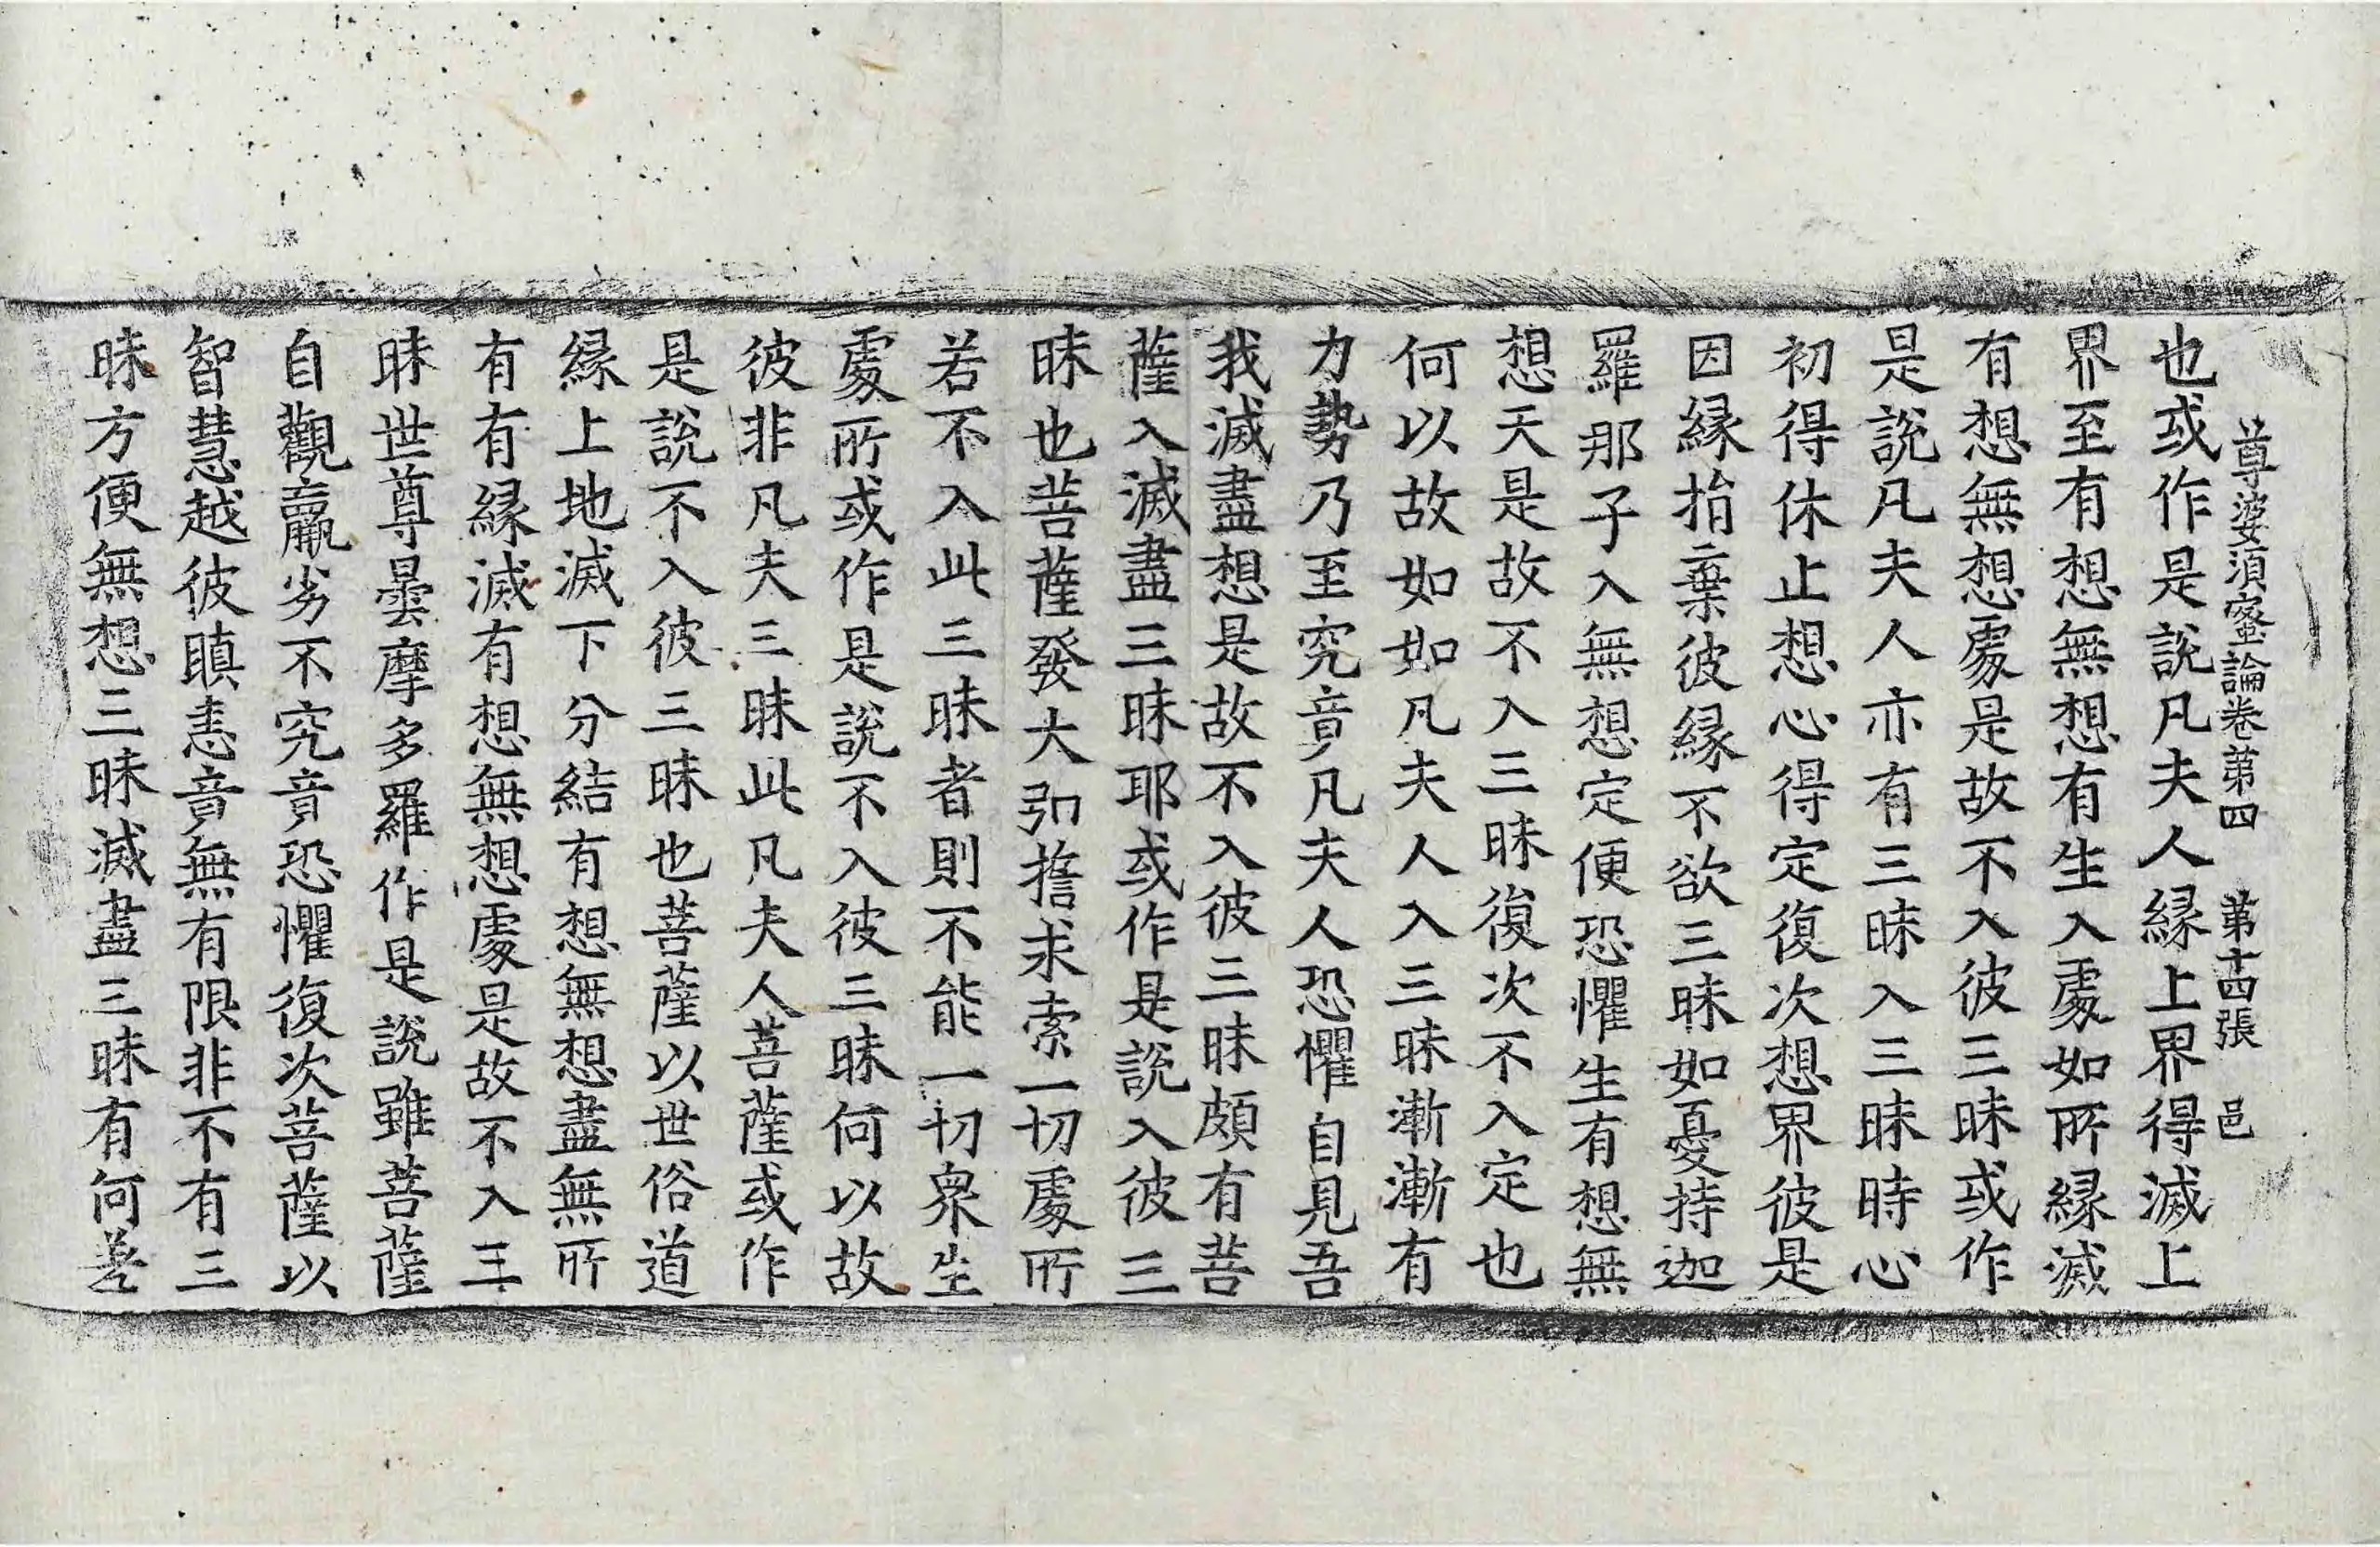 尊婆須蜜論卷第四 第十四張 邑
也或作是說凡夫人縁上界得滅上
界至有想無想有生入處如所縁滅
有想無想處是故不入彼三昧或作
是說凡夫人亦有三昧入三昧時心
初得休止想心得定復次想界彼是
因縁捨棄彼縁不欲三昧如憂持迦
羅那子入無想定便恐懼生有想無
想天是故不入三昧復次不入定也
何以故如如凡夫人入三昧漸漸有
力勢乃至究竟凡夫人恐懼自見吾
我滅盡想是故不入彼三昧頗有菩
薩入滅盡三昧耶或作是說入彼三
昧也菩薩發大弘擔求索一切處所
若不入此三昧者則不能一切衆生
處所或作是說不入彼三昧何以故
彼非凡夫三昧此凡夫人菩薩或作
是說不入彼三昧也菩薩以世俗道
縁上地滅下分結有想無想盡無所
有有縁滅有想無想處是故不入三
昧世尊曇摩多羅作是說雖菩薩
自觀羸劣不究竟恐懼復次菩薩以
智慧越彼瞋恚竟無有限非不有三
昧方便無想三昧滅盡三昧有何差